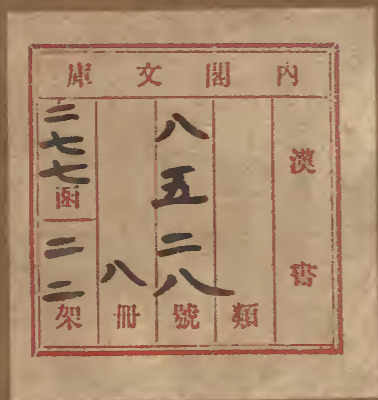 內閣文庫
漢書
類
八五二八號
八冊
二七七函
二二架